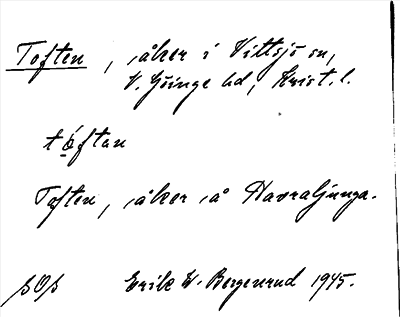 Toften, åker i Vittsjö sn,
V. Göinge hd, Krist. l.
tó̱ftan
Toften, åker å Havraljunga.
SOS Erik W. Bergenrud 1945.